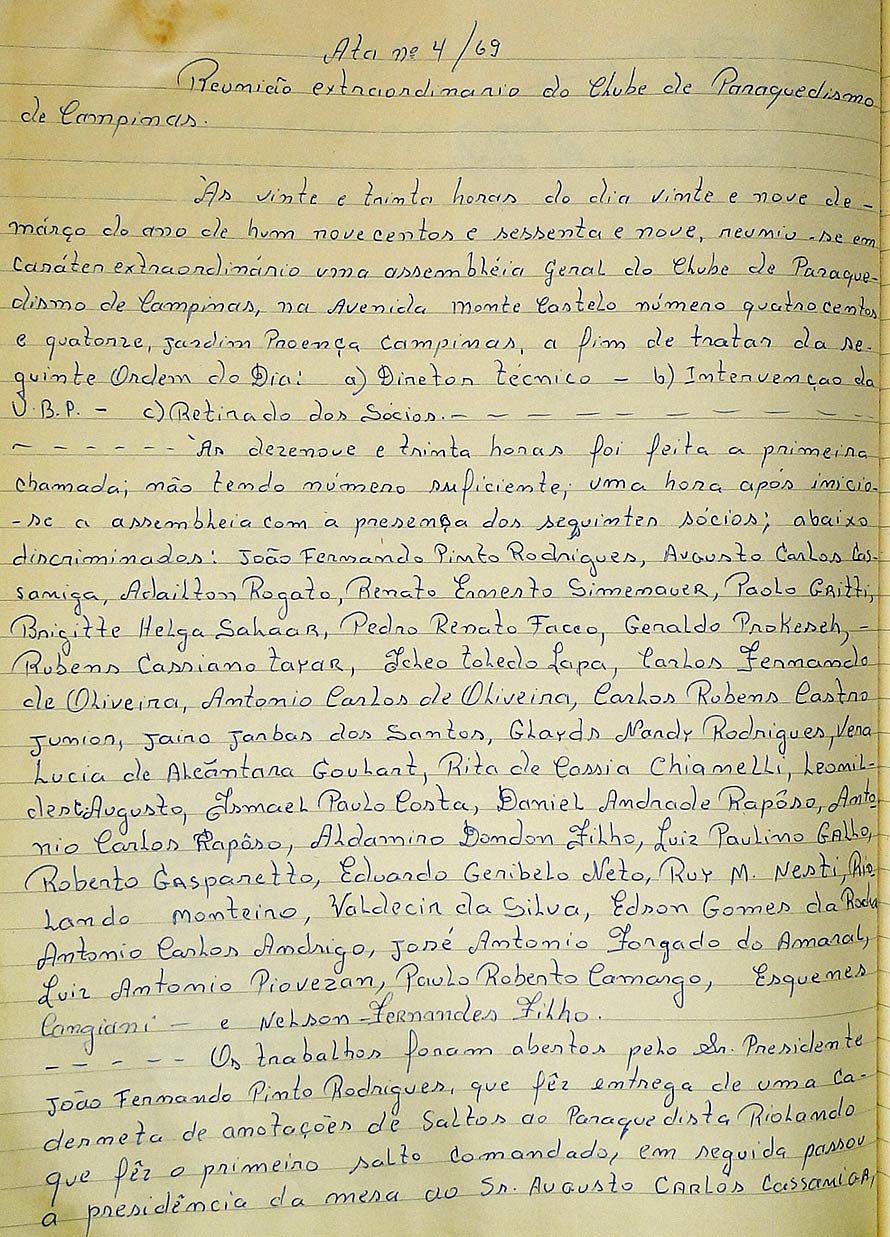 Ata nº 4/69
Reunião extraordinario do Clube de Paraquedismo
de Campinas.
Às vinte e trinta horas do dia vinte e nove de-
março do ano de hum novecentos e sessenta e nove, reuniu-se em
caráter extraordinário uma assembléia Geral do Clube de Paraque-
dismo de Campinas, na Avenida Monte Castelo número quatrocentos
e quatorze, Jardim Proença Campinas, a fim de tratar da se-
guinte Ordem do Dia: a) Diretor técnico - b) Intervençao da
U.B.P. - c) Retirado dos Sócios. - - - - - - - - -
- - - - - - Às dezenove e trinta horas foi feita a primeira
chamada; não tendo número suficiente, uma hora após inicio-
-se a assembleia com a presença dos seguintes sócios; abaixo
discriminados: João Fernando Pinto Rodrigues, Augusto Carlos Cas-
saniga, Adailton Rogato, Renato Ernesto Simenauer, Paolo Gritti,
Brigitte Helga Sahaar, Pedro Renato Facco, Geraldo Prokesch, -
Rubens Cassiano Tayar, Toledo Lapa, Carlos Fernando
de Oliveira, Antonio Carlos de Oliveira, Carlos Rubens Castro
Junior, Jairo Jarbas dos Santos, Glayds Nardy Rodrigues, Vera
Lucia de Alcântara Goulart, Rita de Cassia Chianelli, Leonil-
des Augusto, Ismael Paulo Costa, Daniel Andrade Rapôso, Anto-
nio Carlos Rapôso, Aldamiro Dondon Filho, Luiz Paulino Galho,
Roberto Gasparetto, Eduardo Geribelo Neto, Ruy M. Nesti, Rio-
lando Monteiro, Valdecir da Silva, Edson Gomes da Rocha
Antonio Carlos Andrigo, José Antonio Forgado do Amaral,
Luiz Antonio Piovezan, Paulo Roberto Camargo, Esquenes
Cangiani - e Nelson Fernandes Filho.
- - - - - Os trabalhos foram abertos pelo Sr. Presidente
João Fernando Pinto Rodrigues, que fêz entrega de uma ca-
derneta de anotações de Saltos ao Paraquedista Riolando
que fêz o primeiro salto comandado, em seguida passou
a presidência da mesa ao Sr. Augusto Carlos Cassaniga,